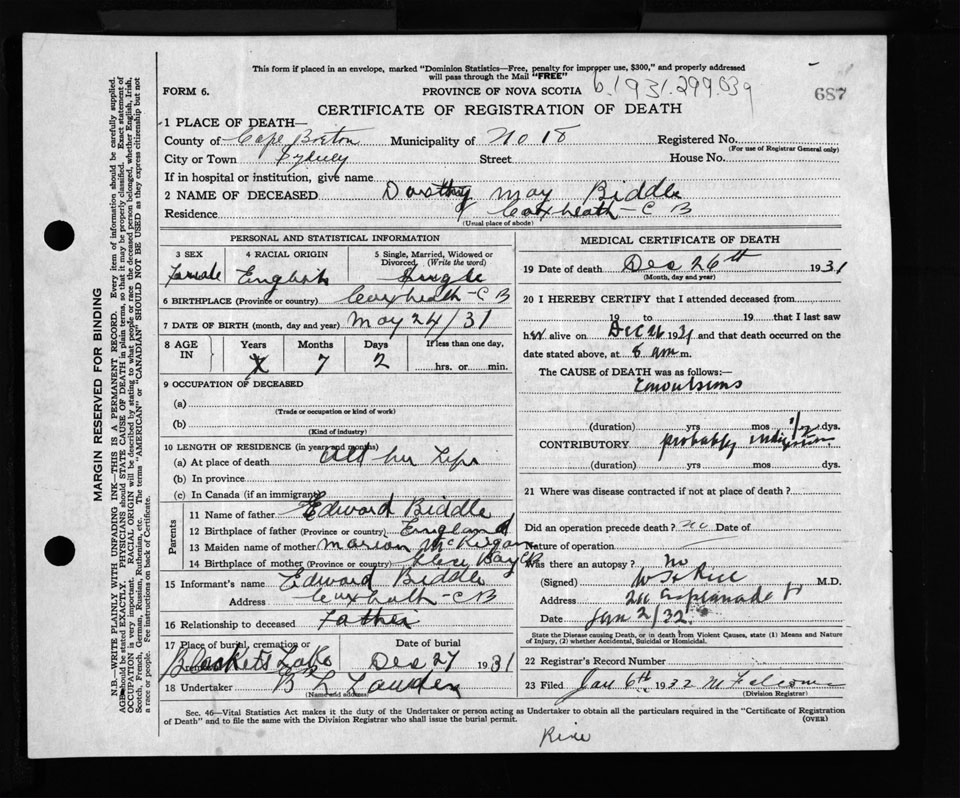 This form if placed in an envelope, marked "Dominion Statistics—Free, penalty for improper use, $300," and properly addressed
will pass through the Mail "FREE"
FORM 6.
PROVINCE OF NOVA SCOTIA
6.1931.299.039
687
CERTIFICATE OF REGISTRATION OF DEATH
1 PLACE OF DEATH—
County of Cape Breton Municipality of No 18 Registered No.
(For use of Registrar General only)
City or Town Sydney Street House No.
If in hospital or institution, give name
2 NAME OF DECEASED Dorothy May Biddle
Residence Coxheath - C B
(Usual place of abode)
PERSONAL AND STATISTICAL INFORMATION
3 SEX 4 RACIAL ORIGIN 5 Single, Married, Widowed or Divorced. (Write the word)
Female English Single
6 BIRTHPLACE (Province or country) Coxheath - C B
7 DATE OF BIRTH (month, day and year) May 24/31
8 AGE IN Years Months Days If less than one day,
7 2 hrs. or min.
9 OCCUPATION OF DECEASED
(a)
(Trade or occupation or kind of work)
(b)
(Kind of industry)
10 LENGTH OF RESIDENCE (in years and months)
(a) At place of death All her Life
(b) In province
(c) In Canada (if an immigrant)
Parents
11 Name of father Edward Biddle
12 Birthplace of father (Province or country) England
13 Maiden name of mother Marion
14 Birthplace of mother (Province or country) Glace Bay CB
15 Informant's name Edward Biddle
Address Coxheath - CB
16 Relationship to deceased Father
17 Place of burial, cremation or Date of burial
Blacketts Lake Dec 27 1931
18 Undertaker
(Name and address)
MEDICAL CERTIFICATE OF DEATH
19 Date of death Dec 26th 1931
(Month, day and year)
20 I HEREBY CERTIFY that I attended deceased from
19 to 19 that I last saw
her alive on Dec 1931 and that death occurred on the
date stated above, at am m.
The CAUSE of DEATH was as follows:—
Convulsions
(duration) yrs mos 1/2 dys.
CONTRIBUTORY probably indigestion
(duration) yrs mos dys.
21 Where was disease contracted if not at place of death?
Did an operation precede death? no Date of
Nature of operation
Was there an autopsy? No
(Signed) Rice M.D.
Address Esplanade St
Date Jan 2/32
State the Disease causing Death, or in death from Violent Causes, state (1) Means and Nature
of Injury, (2) whether Accidental, Suicidal or Homicidal.
22 Registrar's Record Number
23 Filed Jan 6th 1932
(Division Registrar)
Sec. 46—Vital Statistics Act makes it the duty of the Undertaker or person acting as Undertaker to obtain all the particulars required in the "Certificate of Registration
of Death" and to file the same with the Division Registrar who shall issue the burial permit.
(OVER)
Rice
MARGIN RESERVED FOR BINDING
N.B.—WRITE PLAINLY WITH UNFADING INK—THIS IS A PERMANENT RECORD. Every item of information should be carefully supplied.
AGE should be stated EXACTLY. PHYSICIANS should STATE CAUSE OF DEATH in plain terms, so that it may be properly classified. Exact statement of
OCCUPATION is very important. RACIAL ORIGIN will be described by stating to what people or race the deceased person belonged, whether English, Irish,
Scotch, French, German, Russian, Ruthenian, etc. The terms "AMERICAN" or "CANADIAN" SHOULD NOT BE USED as they express citizenship but not
a race or people. See instructions on back of Certificate.